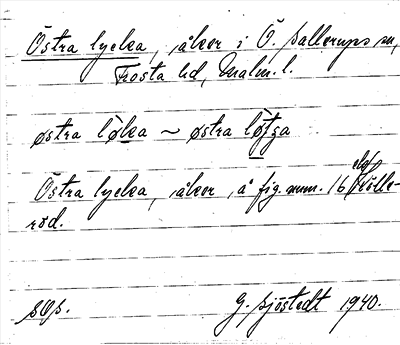 Östra lycka, åker i Ö. Sallerups sn,
Frosta hd, Malm. l.
østra lø̀ka ~ østra lø̀tga
Östra lycka, åker, å fig.num. 16
röd.
G. Sjöstedt 1940.